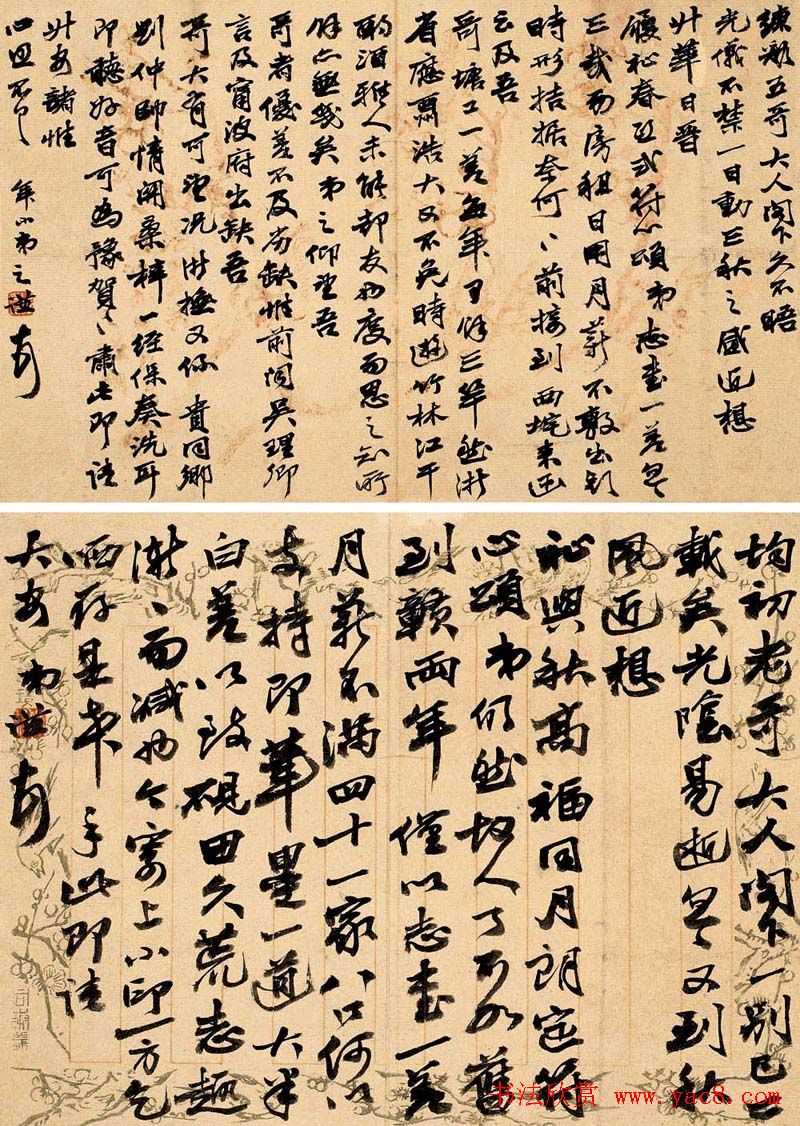 練溪五哥大人閣下久不晤
光儀不禁一日動三秋之感近想
升華日晉
履祉春和式符心頌弟志書一差忽忽
三載而房租日用月薪不敷出錢
時形拮据奈何奈何前接到西垞來函
云及吾
哥塘工一差每年可餘三竿然浙
省應酬浩大又不免時遊竹林江干
酌酒雅人未能卻友如度而思之知所
餘亦無幾矣弟之仰望吾
哥者優差不及劣缺惟前聞吳理卿
言及甯波府出缺吾
哥大有可望況浙撫又係貴同鄉
劉仲帥情關桑梓一經保奏洗耳
即聽好音可為豫賀豫賀肅此即請
升安諸惟
心照不一
年小弟之謙頓首
均初老哥大人閣下一別已三
載矣光陰易逝忽忽又到秋
風近想
祉與秋高福同月朗定符
心頌弟仍然故人了不如舊
到贛兩年僅以志書一差
月薪不滿四十一家八口何以
支持即筆墨一道大半
白差以致硯田久荒志趣
漸漸而減如今寄上小印一方乞
哂存是幸手此即請
大安弟謙頓首
书法欣赏 www.yac8.com